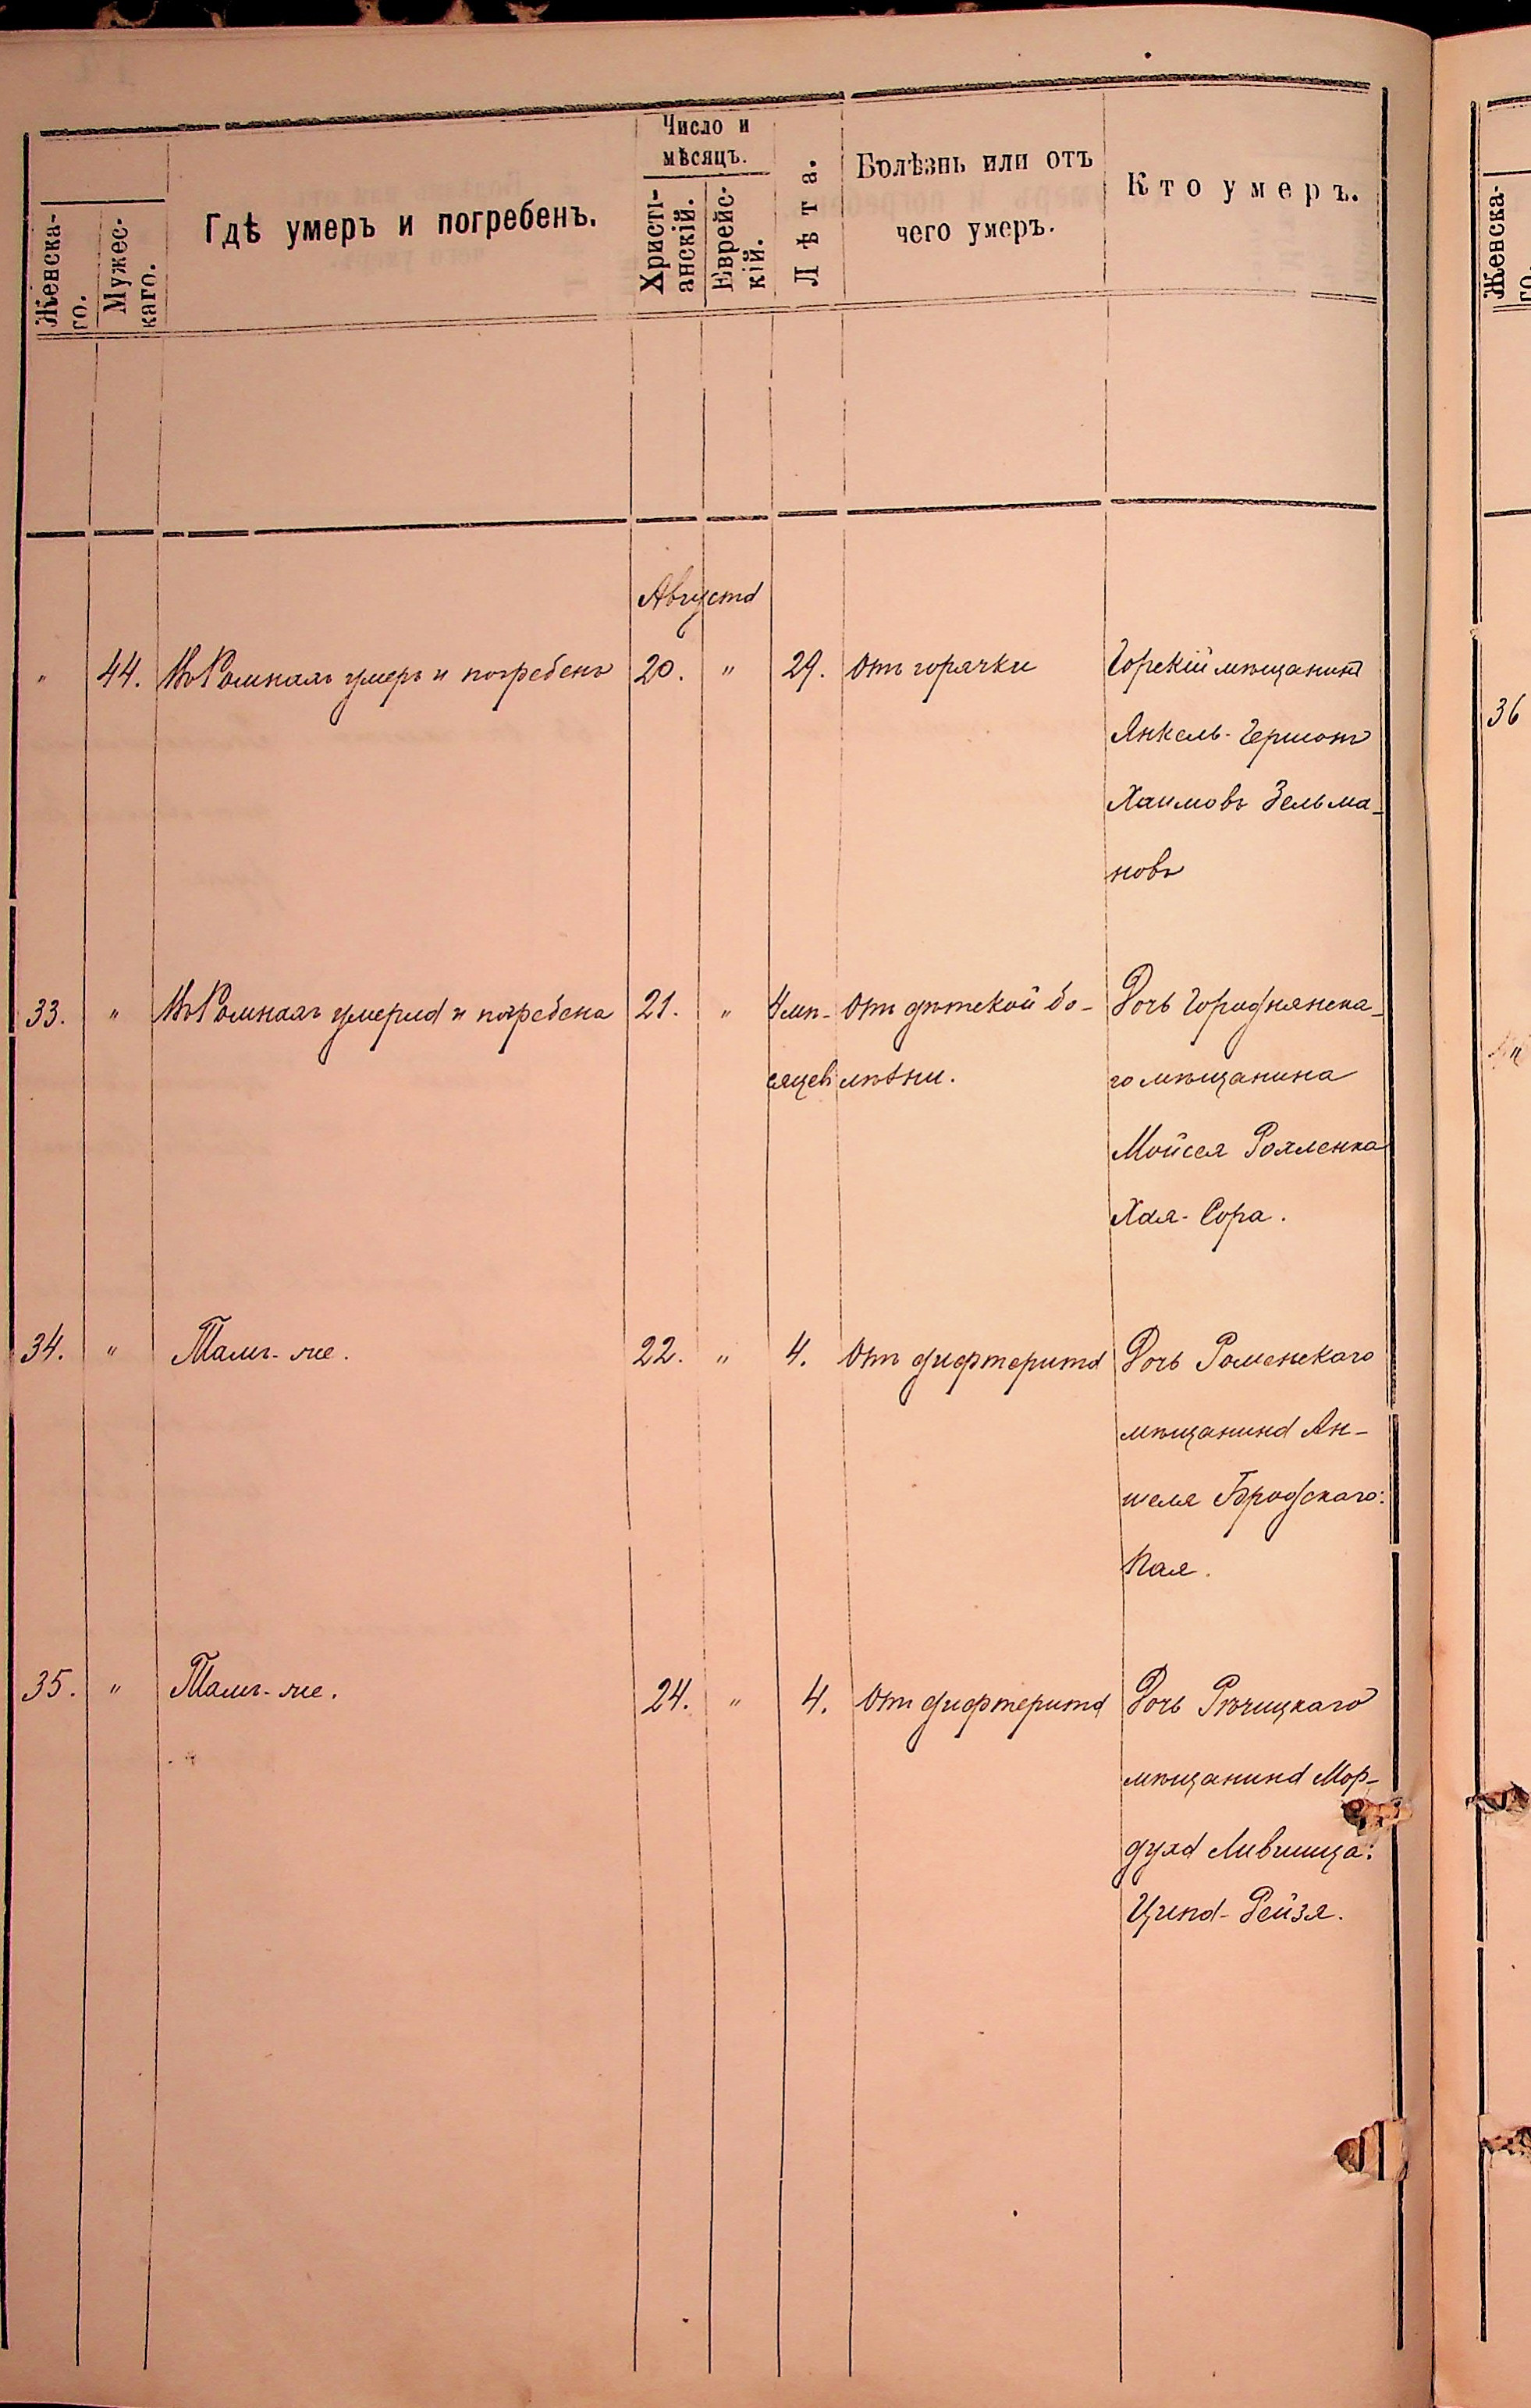 Женска-
го.
Мужес-
каго.
Гдѣ умеръ и погребенъ.
Число и
мѣсяцъ.
Христі-
анскій.
Еврейс-
кій.
Лѣта.
Болѣзнь или отъ
чего умеръ.
Кто умеръ.
Августа
" 44. Въ Ромнахъ умеръ и погребенъ 20. " 29. Отъ горячки Горскій мѣщанинъ
Янкель-Гершонъ
Хаимовъ Зельма-
новъ
33. " Въ Ромнахъ умерла и погребена 21. " 4 мѣ- Отъ дѣтской бо- Дочь Городнянска-
сяцев лѣзни. го мѣщанина
Мойсея Рохленка
Хая-Сора.
34. " Тамъ-же. 22. " 4. Отъ дифтерита Дочь Роменскаго
мѣщанина Ан-
шеля Бродскаго:
Хая.
35. " Тамъ-же. 24. " 4. Отъ дифтерита Дочь Рѣчицкаго
мѣщанина Мор-
духа Лившица:
Ципа-Рейзя.
Женска-
го.
36
"